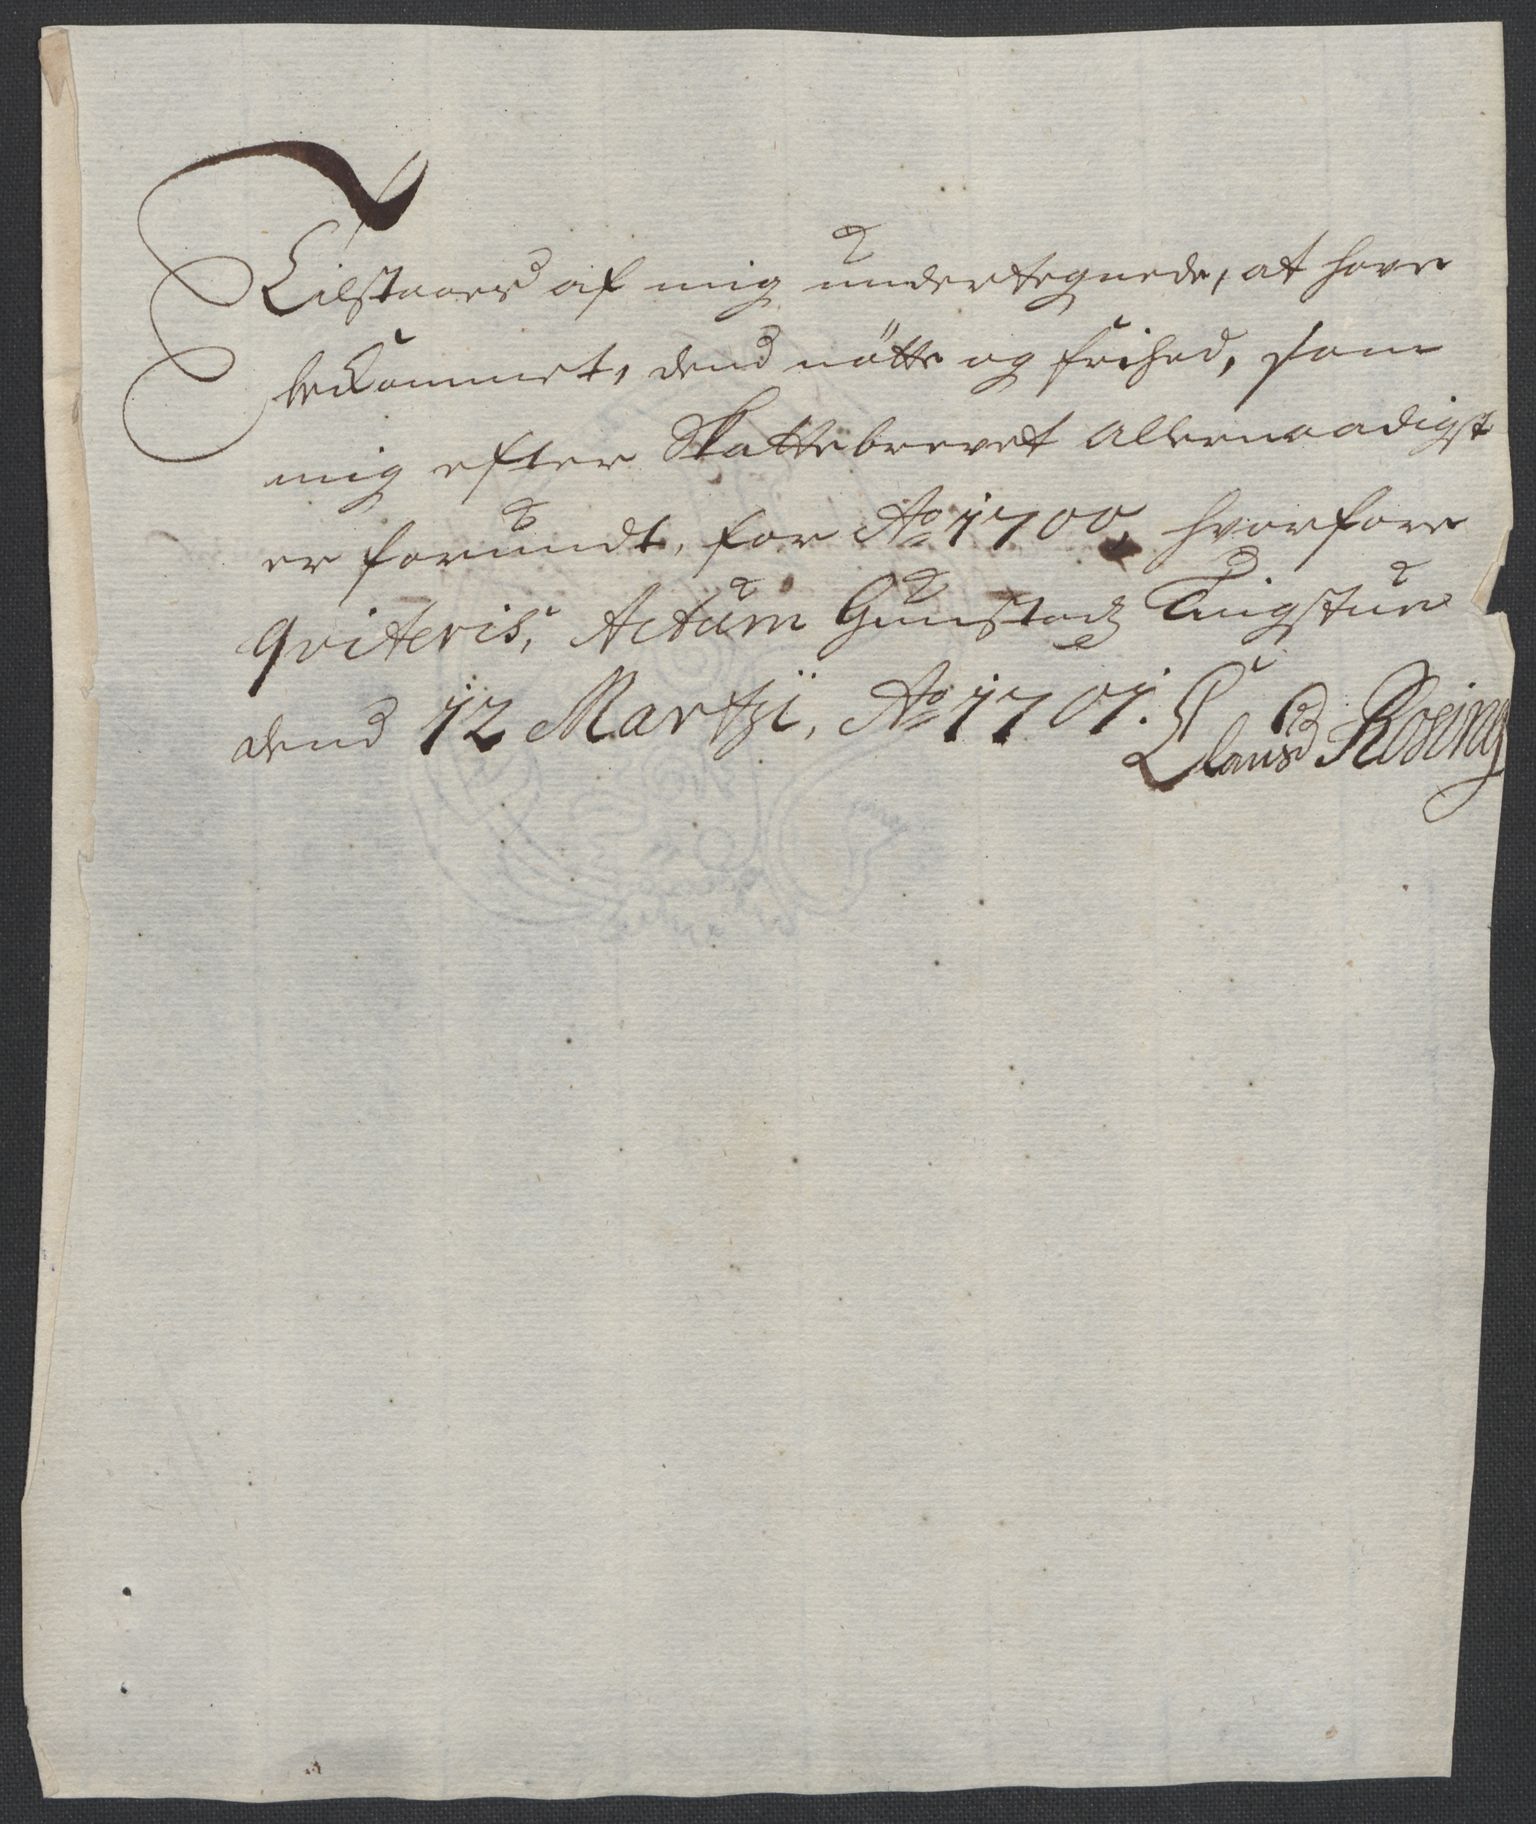 Tilstaaes af mig undertegnede, at have
bekommet, dend nötte og frihed, som
mig efter Skattebrevet allernaadigst
er forundt, for Ao 1700, hvorfore
qviteris, Actum Gunstad Tingstue
dend 12 Martzii, Ao 1701.
Claus Rosing